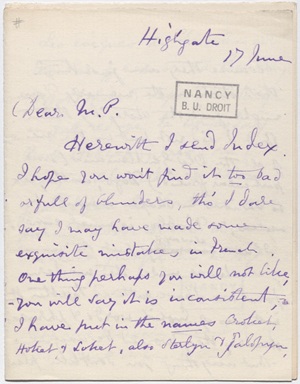 Highgate
17 June
NANCY
B. U. DROIT
Dear M.P.
Herewith I send Index.
I hope you won't find it too bad
or full of blunders, tho' I dare
say I may have made some
exquisite mistakes in French.
One thing perhaps you will not like,
- you will say it is inconsistent,
I have put in the names Croket,
Hoket & Loket, also Sterlyn &